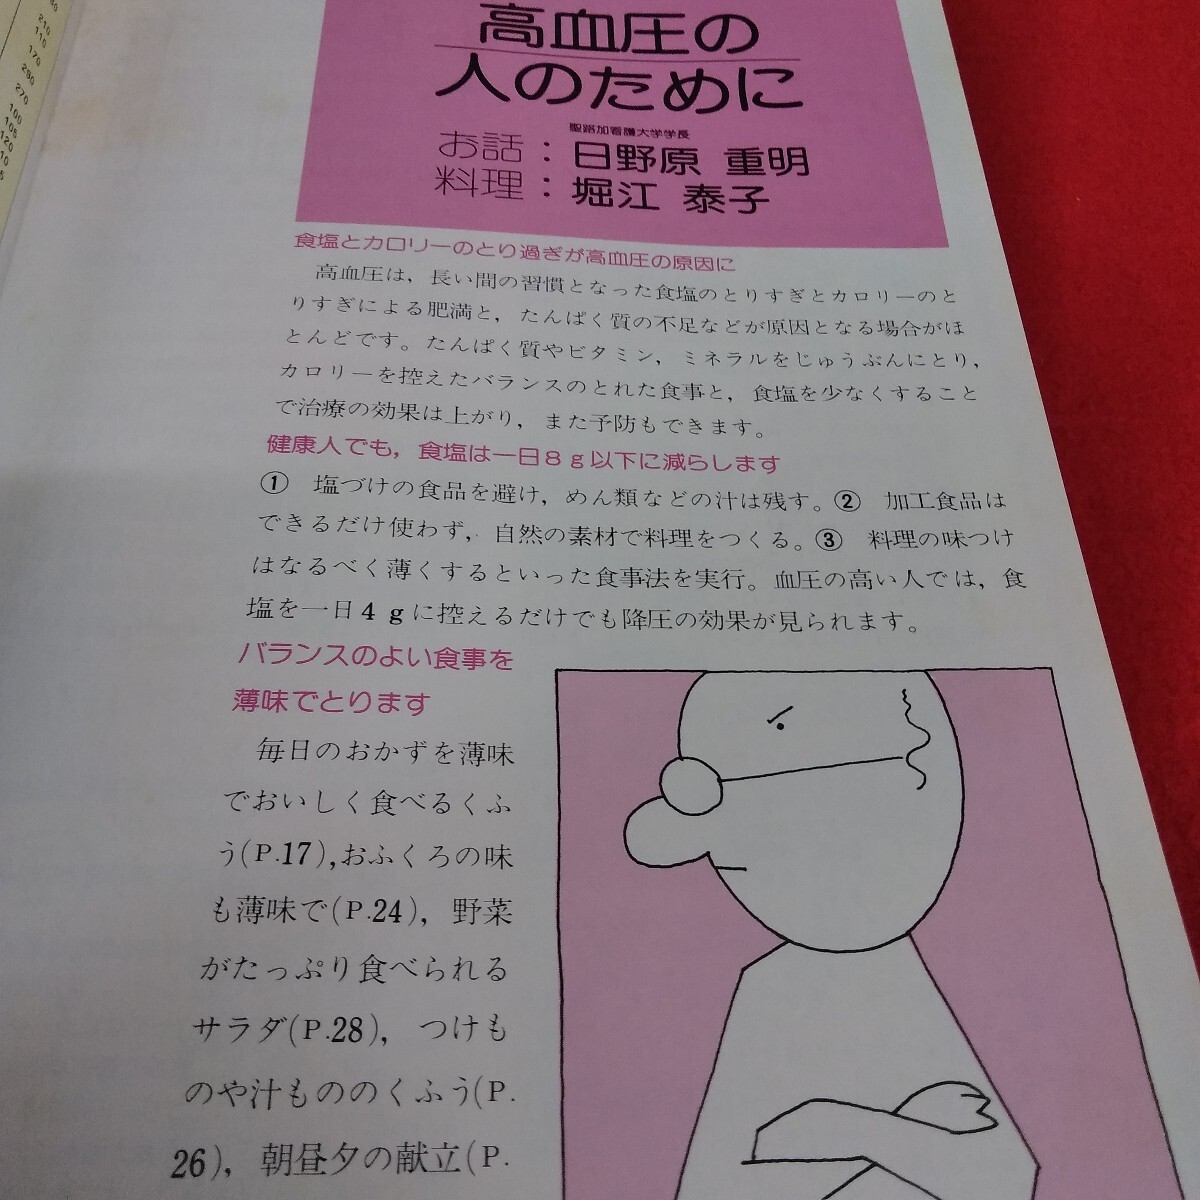 210
110
170
290
270
100
105
120
高血圧の
人のために
聖路加看護大学学長
お話：日野原 重明
料理：堀江 泰子
食塩とカロリーのとり過ぎが高血圧の原因に
高血圧は，長い間の習慣となった食塩のとりすぎとカロリーのと
りすぎによる肥満と，たんぱく質の不足などが原因となる場合がほ
とんどです。たんぱく質やビタミン，ミネラルをじゅうぶんにとり，
カロリーを控えたバランスのとれた食事と，食塩を少なくすること
で治療の効果は上がり，また予防もできます。
健康人でも，食塩は一日8g以下に減らします
① 塩づけの食品を避け，めん類などの汁は残す。② 加工食品は
できるだけ使わず，自然の素材で料理をつくる。③ 料理の味つけ
はなるべく薄くするといった食事法を実行。血圧の高い人では，食
塩を一日4gに控えるだけでも降圧の効果が見られます。
バランスのよい食事を
薄味でとります
毎日のおかずを薄味
でおいしく食べるくふ
う(P.17),おふくろの味
も薄味で(P.24)，野菜
がたっぷり食べられる
サラダ(P.28)，つけも
のや汁もののくふう(P.
26)，朝昼夕の献立(P.